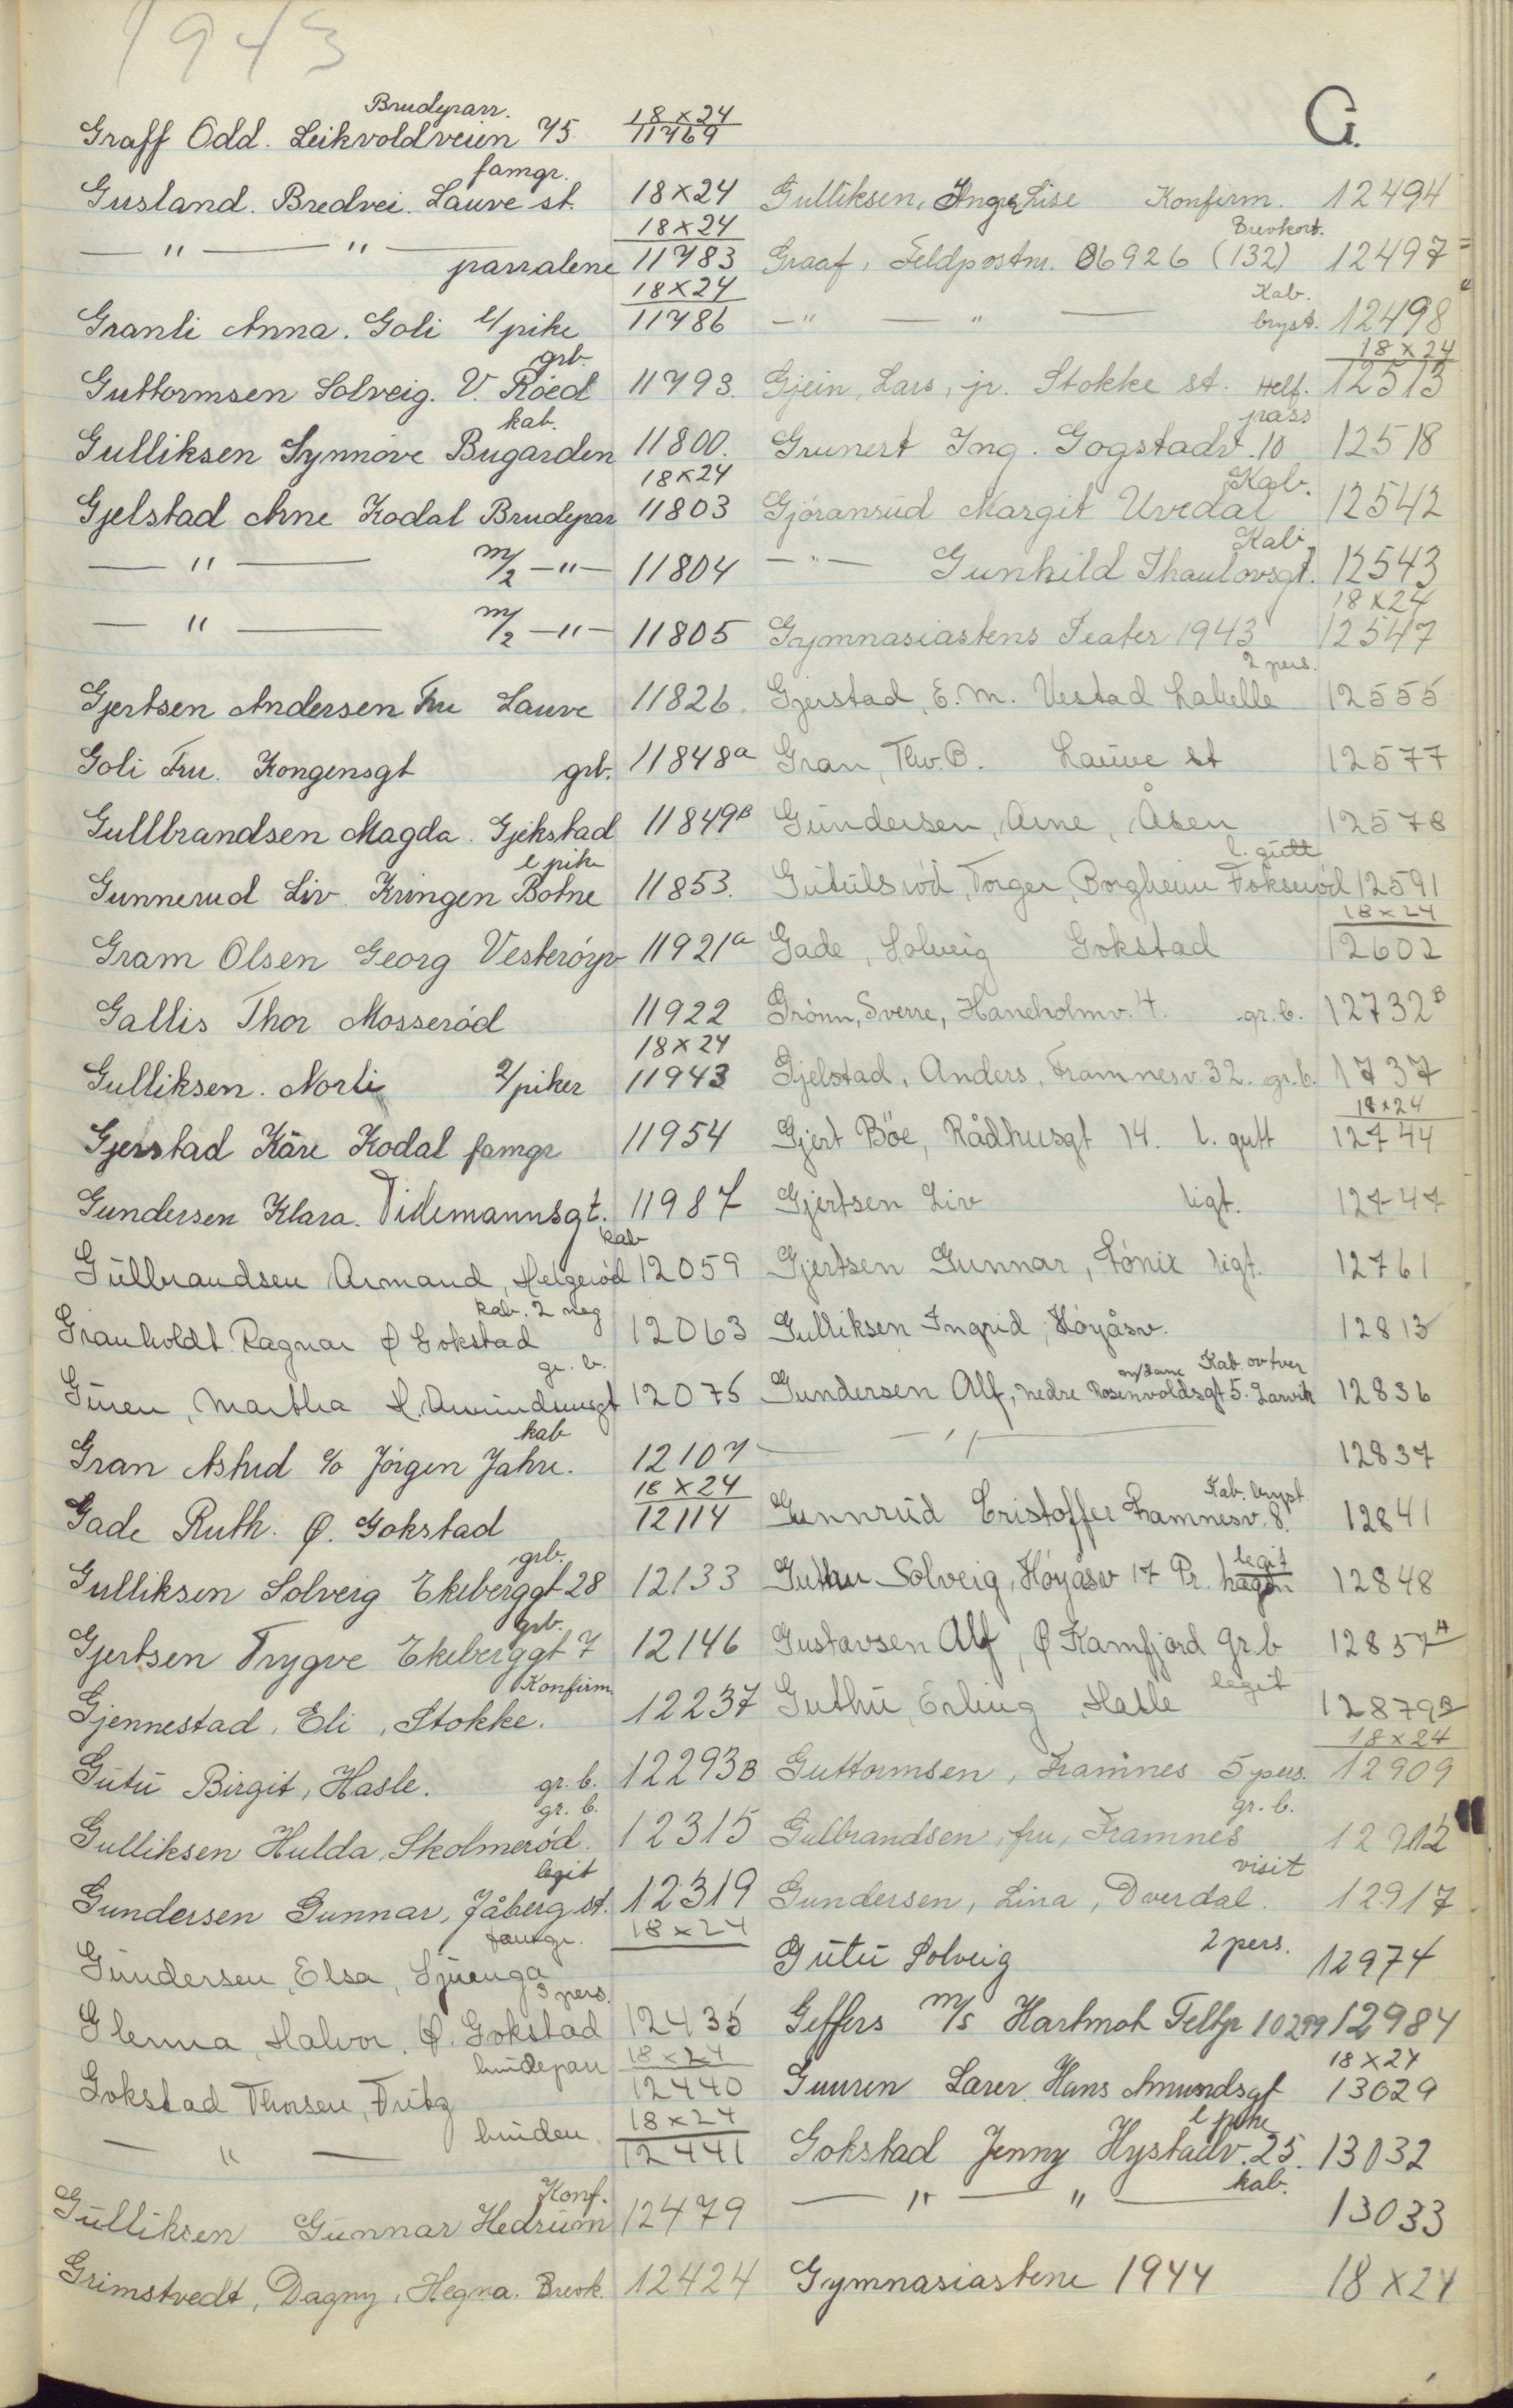 1943
G.
Brudeparr.
Graff Odd. Leikvoldveien 75 18x24 11769
famgr.
Gusland. Bredvei. Lauve st. 18x24
— " — " — parralene 18x24 11783
Granli Anna. Goli l/pike 18x24 11786
grb.
Guttormsen Solveig. V. Røed 11793.
kab.
Gulliksen Synnøve Bugarden 11800.
Gjelstad Arne Kodal Brudepar 18x24 11803
— " — m/2 — " — 11804
— " — m/2 — " — 11805
Gjertsen Andersen Fru Lauve 11826.
Goli Fru. Kongensgt grb. 11848a
Gullbrandsen Magda. Gjekstad 11849B
l pike
Gunnerud Liv. Kringen Botne 11853.
Gram Olsen Georg Vesterøyv 11921a
Gallis Thor Mosserød 11922
Gulliksen. Norli 2/piker 18x24 11943
Gjerstad Kåre Kodal famgr 11954
Gundersen Klara. Tidemannsgt. 11987
kab
Gullbrandsen Armand, Helgerød 12059
kab. 2 neg
Granholdt Ragnar Ø Gokstad 12063
gr. b.
Guren, Martha H. Amundsengt 12075
kab
Gran Astrid c/o Jørgen Jahre. 12107
Gade Ruth. Ø. Gokstad 18x24 12114
grb.
Gulliksen Solveig Ekeberggt 28 12133
grb.
Gjertsen Trygve Ekeberggt 7 12146
Konfirm.
Gjennestad, Eli, Stokke. 12237
Gutu Birgit, Hasle. gr. b. 12293B
gr. b.
Gulliksen Hulda, Skolmerød. 12315
legit
Gundersen Gunnar, Jåberg st. 12319
famgr. 18x24
Gundersen, Elsa, Ljuenga
3 pers.
Glenna, Halvor. Ø. Gokstad 12435
brudeparr 18x24
Gokstad Thorsen, Fritz 12440
— " — bruden. 18x24 12441
Konf.
Gulliksen Gunnar Hedrum 12479
Grimstvedt, Dagny, Hegna. Brevk. 12424
Gulliksen, Inger Lise Konfirm. 12494
Brevkort.
Graaf, Feldpostnr. 06926 (132) 12497
Kab.
— " — " — bryst. 12498
Gjein, Lars, jr. Stokke st. Helf. 18x24 12513
pass
Grunert Ing. Gogstadv. 10 12518
Kab.
Gjøranrud Margit Uvedal 12542
Kab.
— " — Gunhild Thaulowsgt. 12543
Gymnasiastens Teater 1943 18x24 12547
2 pers.
Gjerstad, E. M. Vestad Labelle 12555
Gran, Thv. B. Lauve st 12577
Gundersen, Arne, Åsen 12578
l. gutt
Gutulsrød, Torger, Borgheim Fokserød 12591
Gade, Solveig Gokstad 18x24 12602
Grønn, Sverre, Haneholmv. 4. gr. b. 12732B
Gjelstad, Anders, Framnesv. 32. gr. b. 1737
Gjert Böe, Rådhusgt 14. l. gutt 18x24 12744
Gjertsen Liv ligt. 12747
Gjertsen Gunnar, Fønix ligt. 12761
Gulliksen Ingrid, Høyåsv. 12813
m/dame Kab. ov tver
Gundersen Alf, nedre Rosenvoldsgt 5. Larvik 12836
— " — 12837
Kab. bryst
Gunnrud Cristoffer Framnesv. 8. 12841
legit
Guthu Solveig, Høyåsv 17 Pr. hagen 12848
Gustavsen Alf, Ø Kamfjord gr. b 12857A
legit
Guthu, Erling Hasle 12879B
Guttormsen, Framnes 5 pers. 18x24 12909
gr. b.
Gulbrandsen, fru, Framnes 12912
visit
Gundersen, Lina, Dverdal. 12917
Gutu Solveig 2 pers. 12974
Geffers m/s Hartmot Feltp 10299 12984
Guuren Larer. Hans Amundsgt 18x24 13029
l pike
Gokstad Jenny Hystadv. 25. 13032
kab.
— " — " — 13033
Gymnasiastene 1944 18x24